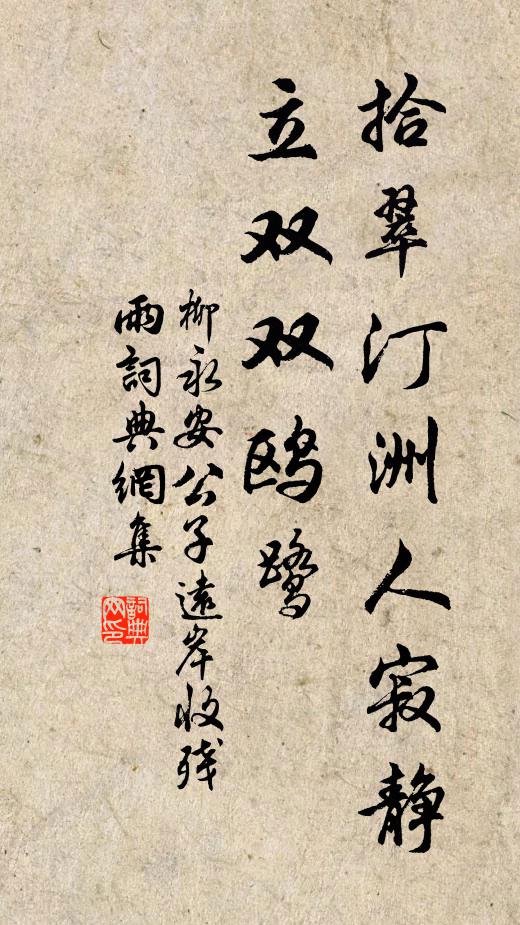 拾翠汀洲人寂静
立双双鸥鹭
柳永安公子遠岸收残
雨詞典網集
詞典
网印